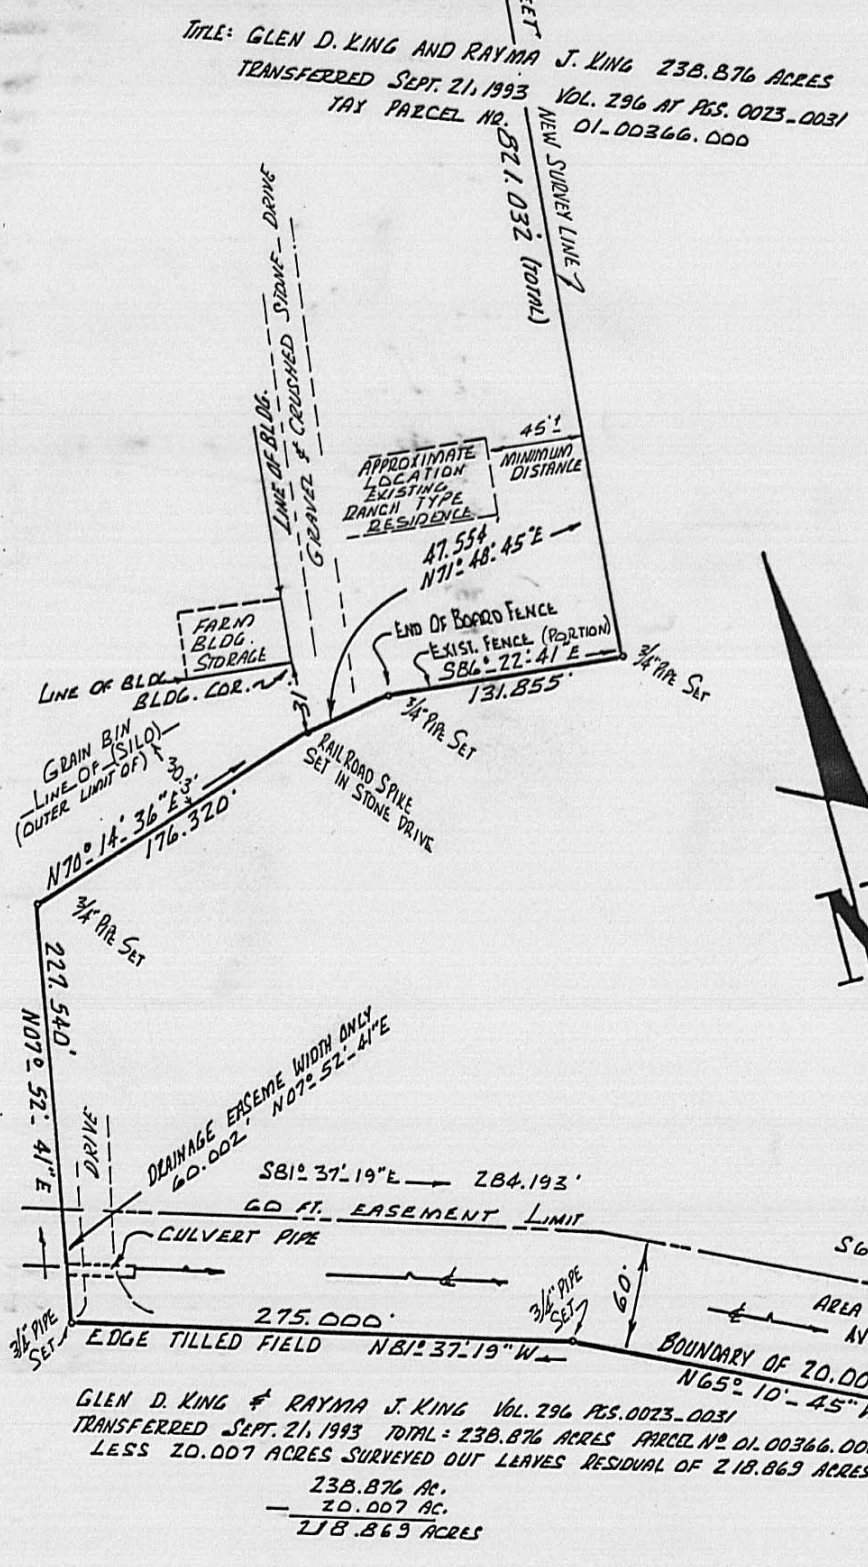 TITLE: GLEN D. KING AND RAYMA J. KING 238.876 ACRES
TRANSFERRED SEPT. 21, 1993 VOL. 296 AT PGS. 0023-0031
TAX PARCEL NO. 01-00366.000
821.032 (TOTAL)
NEW SURVEY LINE
GRAVEL & CRUSHED STONE DRIVE
LINE OF BLDG.
45'±
MINIMUM
DISTANCE
APPROXIMATE
LOCATION
EXISTING
RANCH TYPE
RESIDENCE
47.554
N71°-48'-45"E
END OF BOARD FENCE
EXIST. FENCE (PORTION)
S86°-22'-41"E
131.855'
3/4" PIPE SET
3/4" PIPE SET
FARM
BLDG.
STORAGE
LINE OF BLDG.
BLDG. COR.
31'
RAILROAD SPIKE
SET IN STONE DRIVE
GRAIN BIN
LINE OF (SILO)
(OUTER LIMIT OF)
30.3'
N70°-14'-36"E
176.320'
3/4" PIPE SET
227.540'
N07°-52'-41"E
DRIVE
DRAINAGE EASEME WIDTH ONLY
60.002' N07°-52'-41"E
S81°-37'-19"E 284.193'
60 FT. EASEMENT LIMIT
CULVERT PIPE
60'
S6
AREA
AV
3/4" PIPE
SET
275.000'
3/4" PIPE
SET
EDGE TILLED FIELD N81°-37'-19"W
BOUNDARY OF 20.00
N65°-10'-45"W
N
GLEN D. KING & RAYMA J. KING VOL. 296 PGS. 0023-0031
TRANSFERRED SEPT. 21, 1993 TOTAL = 238.876 ACRES PARCEL Nº 01.00366.00
LESS 20.007 ACRES SURVEYED OUT LEAVES RESIDUAL OF 218.869 ACRES
238.876 AC.
- 20.007 AC.
218.869 ACRES